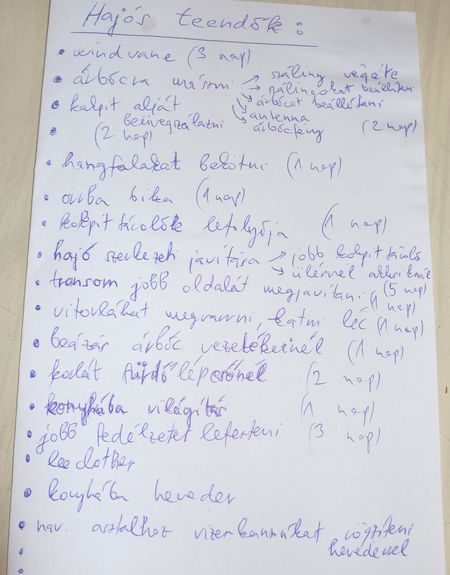 Hajós teendők:
• windvane (3 nap)
• árbócra mászni → száling végéke
→ szálingokat beállítani
→ árbócot beállítani
→ antenna
→ árbócfény (2 nap)
• kalpit alját
beüvegszálazni
(2 nap)
• hangfalakat bekötni (1 nap)
• orrba bika (1 nap)
• kokpit tárolók lefolyója (1 nap)
• hajó szerkezeti javítára → jobb kokpit tároló
→ ülérnél
• transom jobb oldalát megjavítani (5 nap)
(1 nap)
• vitorlákat megvarrni, latni léc (1 nap)
• beázás árbóc vezetékeinél (1 nap)
• korlát fürdőlépcsőnél (2 nap)
• konyhába világítás (1 nap)
• jobb fedélzetet lefesteni (3 nap)
• leeclother
• konyhába heveder
• nav. asztalhoz vizeskannákat rögzíteni
hevederrel